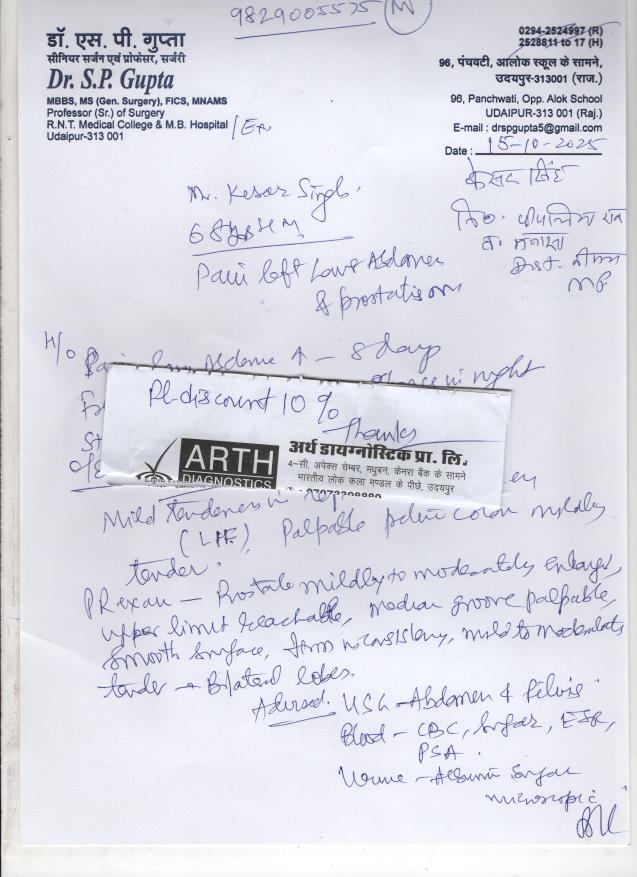 9829005575 (M)
डॉ. एस. पी. गुप्ता
सीनियर सर्जन एवं प्रोफेसर, सर्जरी
Dr. S.P. Gupta
MBBS, MS (Gen. Surgery), FICS, MNAMS
Professor (Sr.) of Surgery
R.N.T. Medical College & M.B. Hospital
Udaipur-313 001
0294-2524997 (R)
2528811 to 17 (H)
96, पंचवटी, आलोक स्कूल के सामने,
उदयपुर-313001 (राज.)
96, Panchwati, Opp. Alok School
UDAIPUR-313 001 (Raj.)
E-mail : drspgupta5@gmail.com
Date : 15-10-2025
केसर सिंह
Dist. नीमच
MP
Mr. Kesar Singh
68
Pain left Lower Abdomen
& prostatism
H/o Pain Abdomen - 8 days
in night
Pl-discount 10 %
Thanks
ARTH
DIAGNOSTICS
अर्थ डायग्नोस्टिक प्रा. लि.
4-सी, अपेक्स चेम्बर, मधुबन, केनरा बैंक के सामने
भारतीय लोक कला मण्डल के पीछे, उदयपुर
O/E
Mild tenderness in
(LIF), Palpable pelvic colon mildly
tender.
PR exam - Prostate mildly to moderately enlarged,
upper limit reachable, median groove palpable,
smooth surface, firm consistency, mild to moderate
tender → Bilateral lobes.
Advised. USG - Abdomen & Pelvis
Blood - CBC, Sugar, ESR,
PSA.
Urine - Albumin Sugar
microscopic